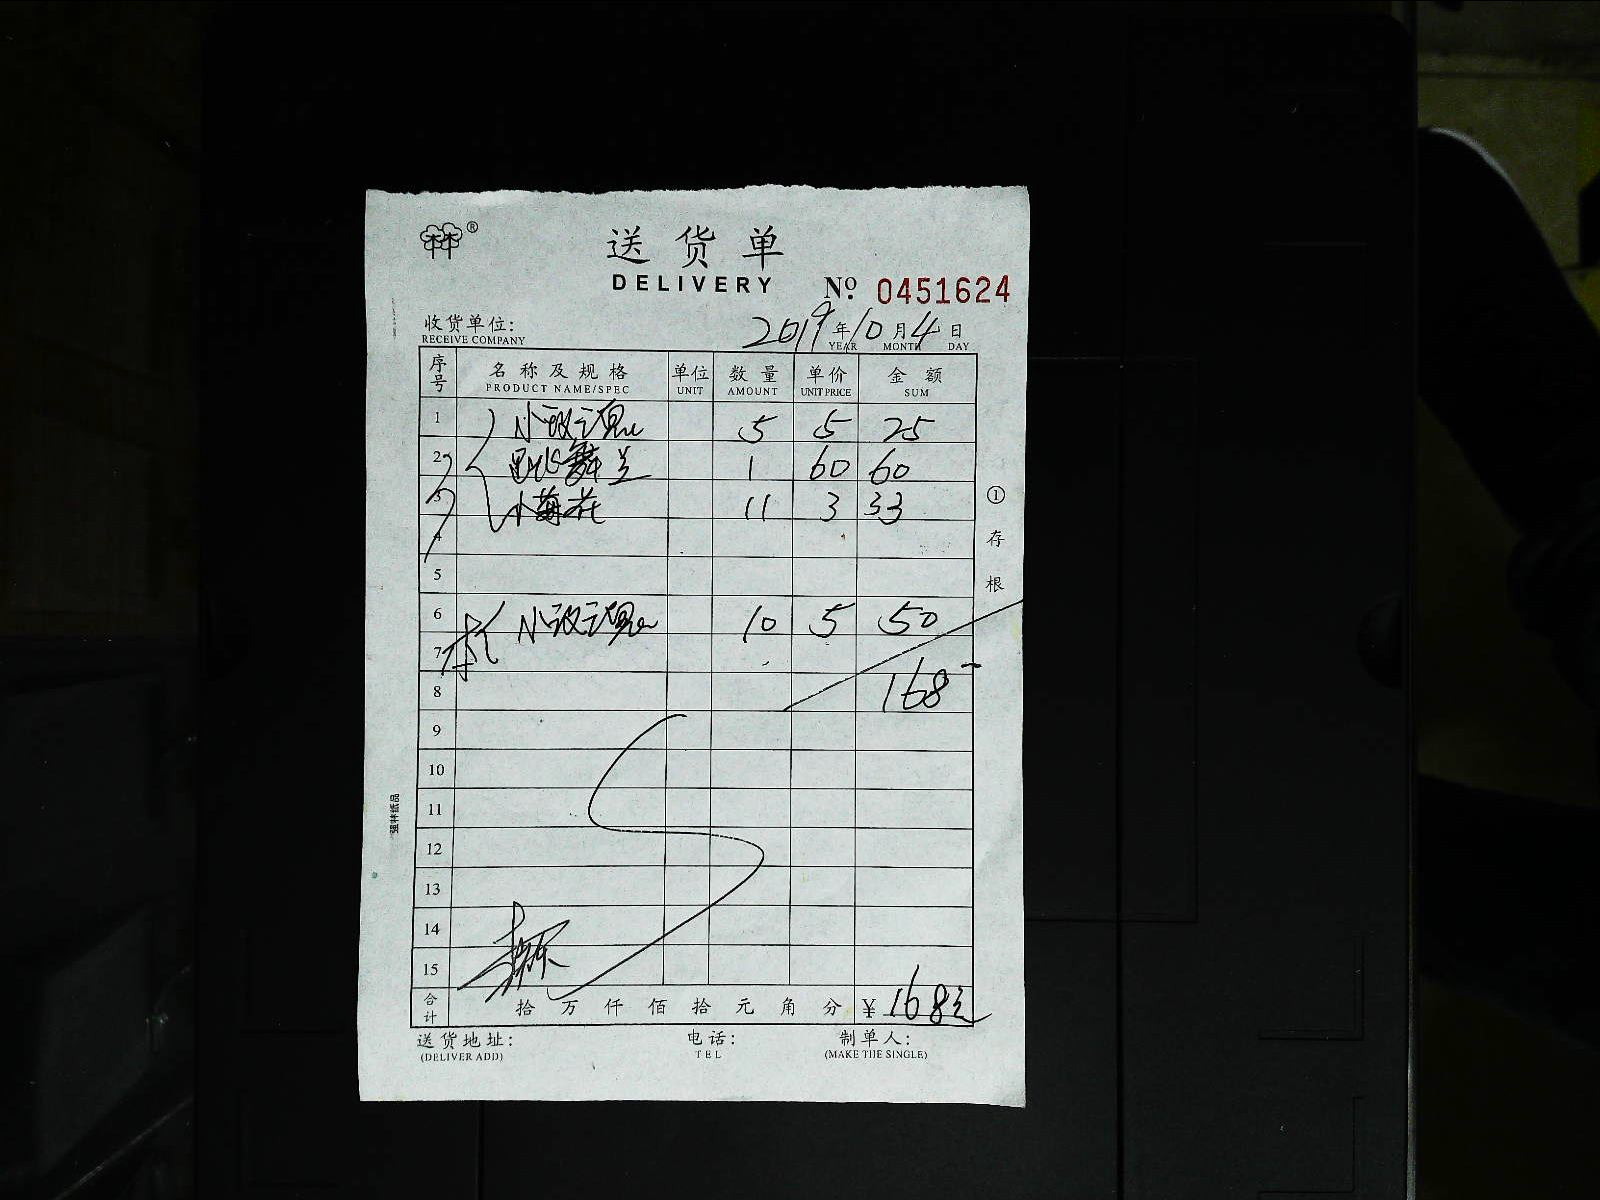 林®
送货单
DELIVERY
Nº 0451624
收货单位:
RECEIVE COMPANY
2019年10月4日
YEAR MONTH DAY
序号 名称及规格 单位 数量 单价 金额
PRODUCT NAME/SPEC UNIT AMOUNT UNIT PRICE SUM
1 小玫瑰 5 5 25
2 跳舞兰 1 60 60
3 小菊花 11 3 33
4
5
6 小玫瑰 10 5 50
7
8 168
9
10
11
12
13
14
15
合计 拾万仟佰拾元角分 ¥168元
送货地址: 电话: 制单人:
(DELIVER ADD) TEL (MAKE THE SINGLE)
①存根
强林纸品